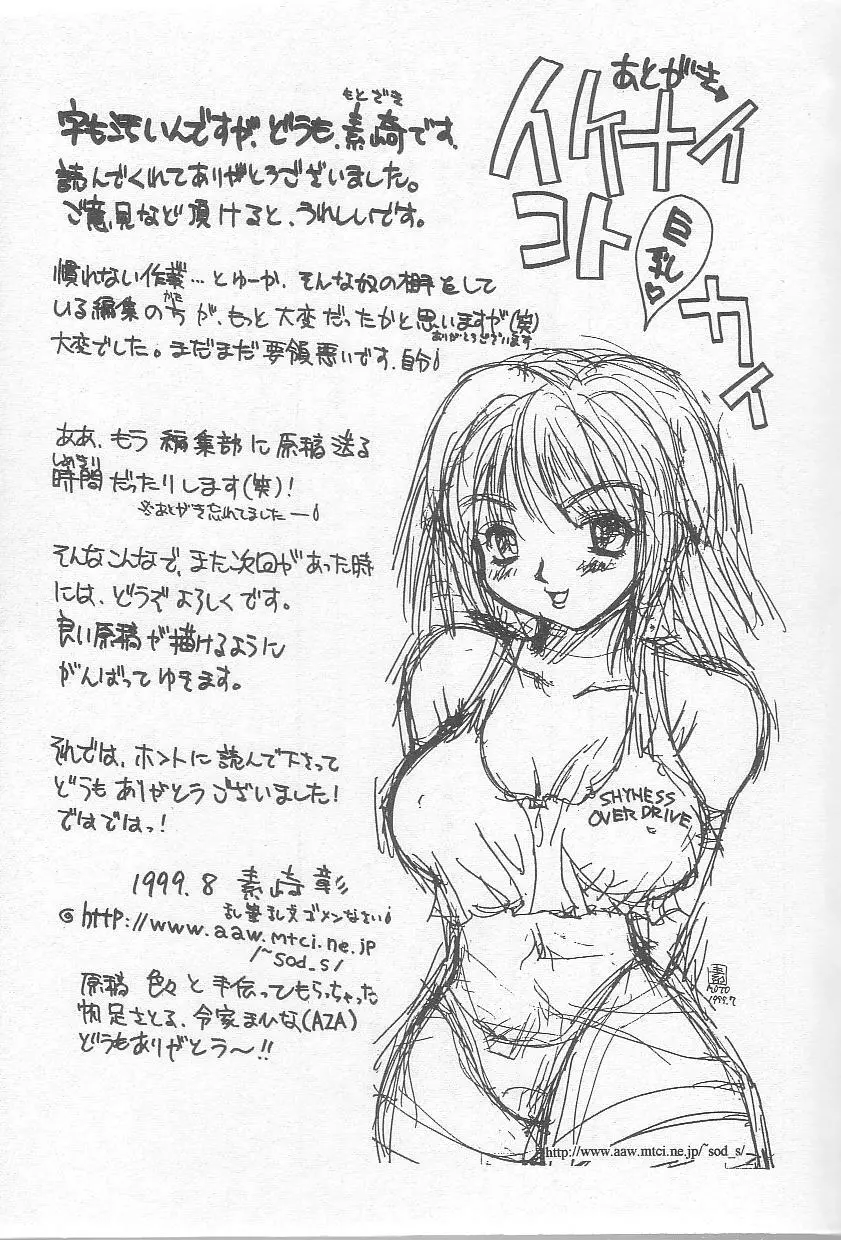 あとがき
イケナイ
コト
巨乳
カイ
もとざき
字も汚いんですが、どうも、素崎です。
読んでくれてありがとうございました。
ご意見など頂けると、うれしいです。
慣れない作業…とゆーか、そんな奴の相手をして
いる編集の方が、もっと大変だったかと思いますが(笑)
かた
ありがとうございます
大変でした。まだまだ要領悪いです、自分!
ああ、もう編集部に原稿送る
しめきり
時間だったりします(笑)!
※あとがき忘れてましたー!
そんなこんなで、また次回があった時
には、どうぞよろしくです。
良い原稿が描けるように
がんばってゆきます。
それでは、ホントに読んで下さって
どうもありがとうございました!
ではではっ!
1999.8 素崎彰
乱筆乱文ゴメンなさい!
@http://www.aaw.mtci.ne.jp
/~sod_s/
原稿 色々と手伝ってもらっちゃった
帆足さとる、令家まひな(AZA)
どうもありがとう〜!!
SHYNESS
OVER DRIVE
素
MOTO
1999.7
http://www.aaw.mtci.ne.jp/~sod_s/